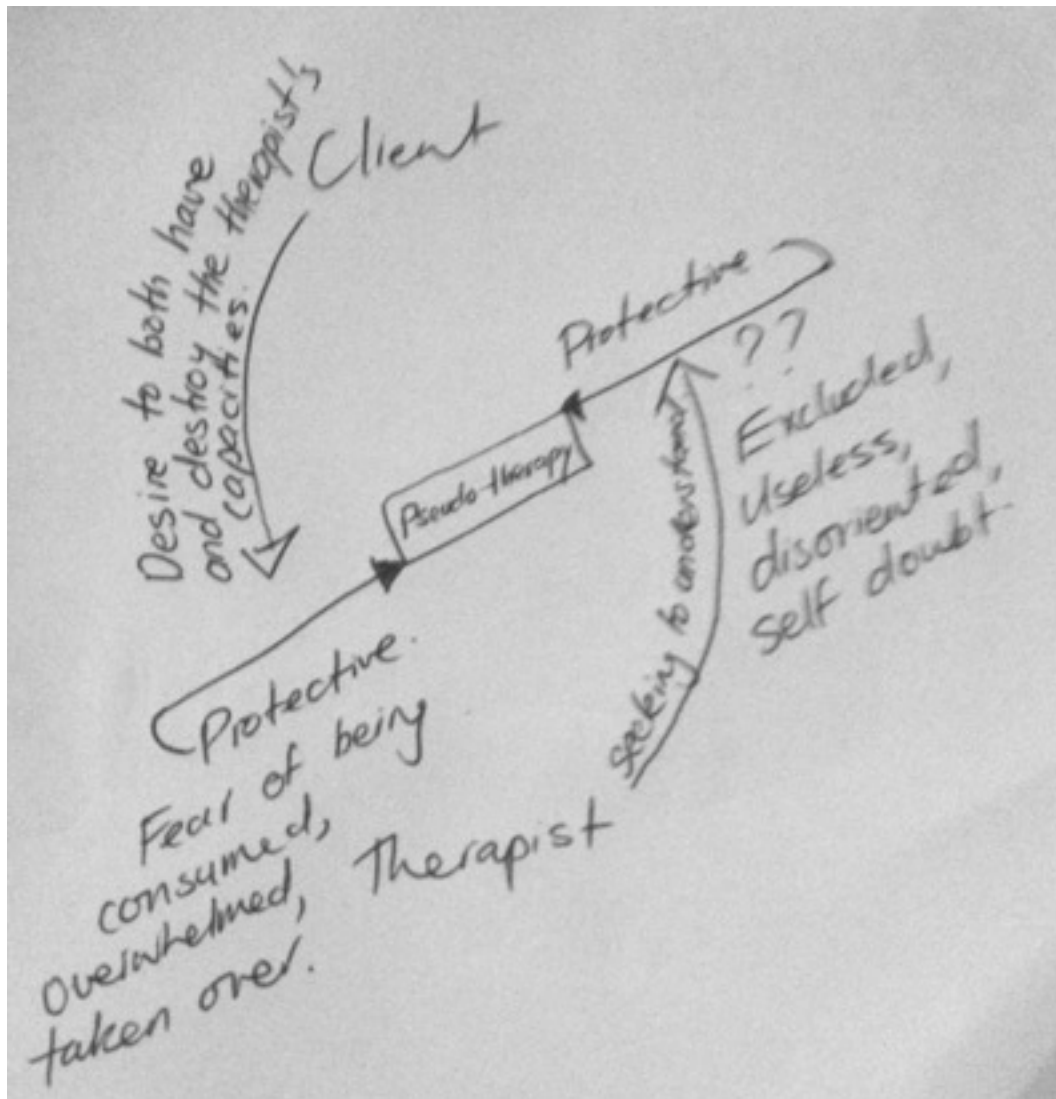 Desire to both have
and destroy the therapist's
capacities.
Client
Protective
??
Excluded,
useless,
disoriented,
self doubt.
Pseudo-therapy
seeking to understand
Protective.
Fear of being
consumed,
overwhelmed,
taken over.
Therapist